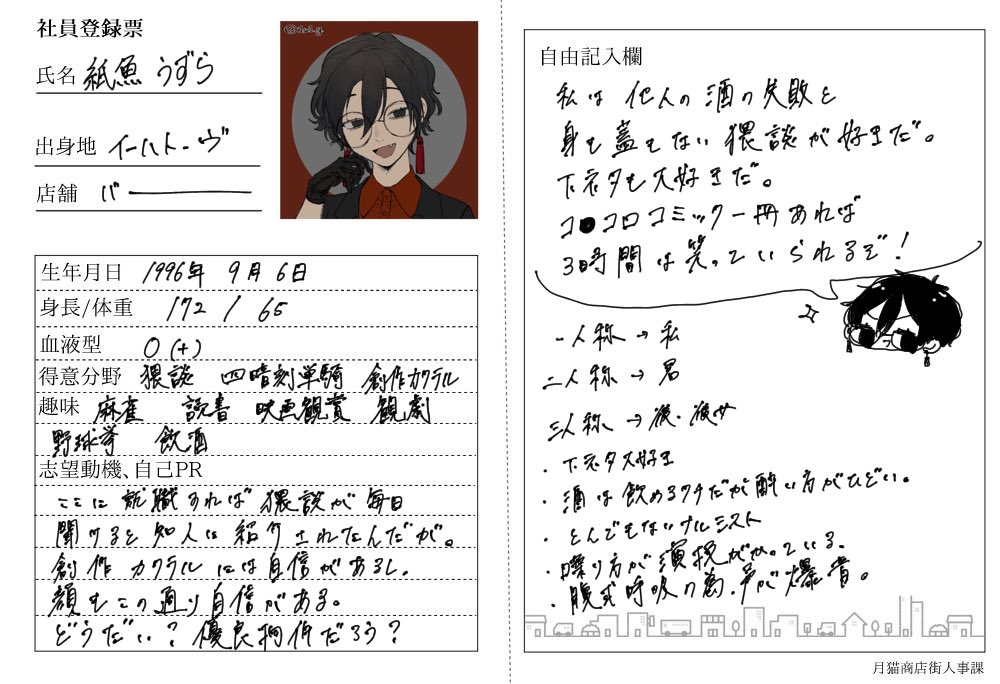 社員登録票
氏名 紙魚 うずら
出身地 イーハトーヴ
店舗 バー
生年月日 1996年 9月 6日
身長/体重 172 / 65
血液型 O (+)
得意分野 猥談 四暗刻単騎 創作カクテル
趣味 麻雀 読書 映画観賞 観劇
野球拳 飲酒
志望動機、自己PR
ここに就職すれば猥談が毎日
聞けると知人に紹介されたんだが。
創作カクテルには自信があるし、
顔もこの通り自信がある。
どうだい?優良物件だろう?
自由記入欄
私は他人の酒の失敗と
身も蓋もない猥談が好きだ。
下ネタも大好きだ。
コ●コロコミック一冊あれば
3時間は笑っていられるぞ!
一人称→私
二人称→君
三人称→彼・彼女
・下ネタ大好き
・酒は飲めるクチだが酔い方がひどい。
・とんでもないナルシスト
・喋り方が演技がかっている。
・腹式呼吸の為、声が爆音。
月猫商店街人事課